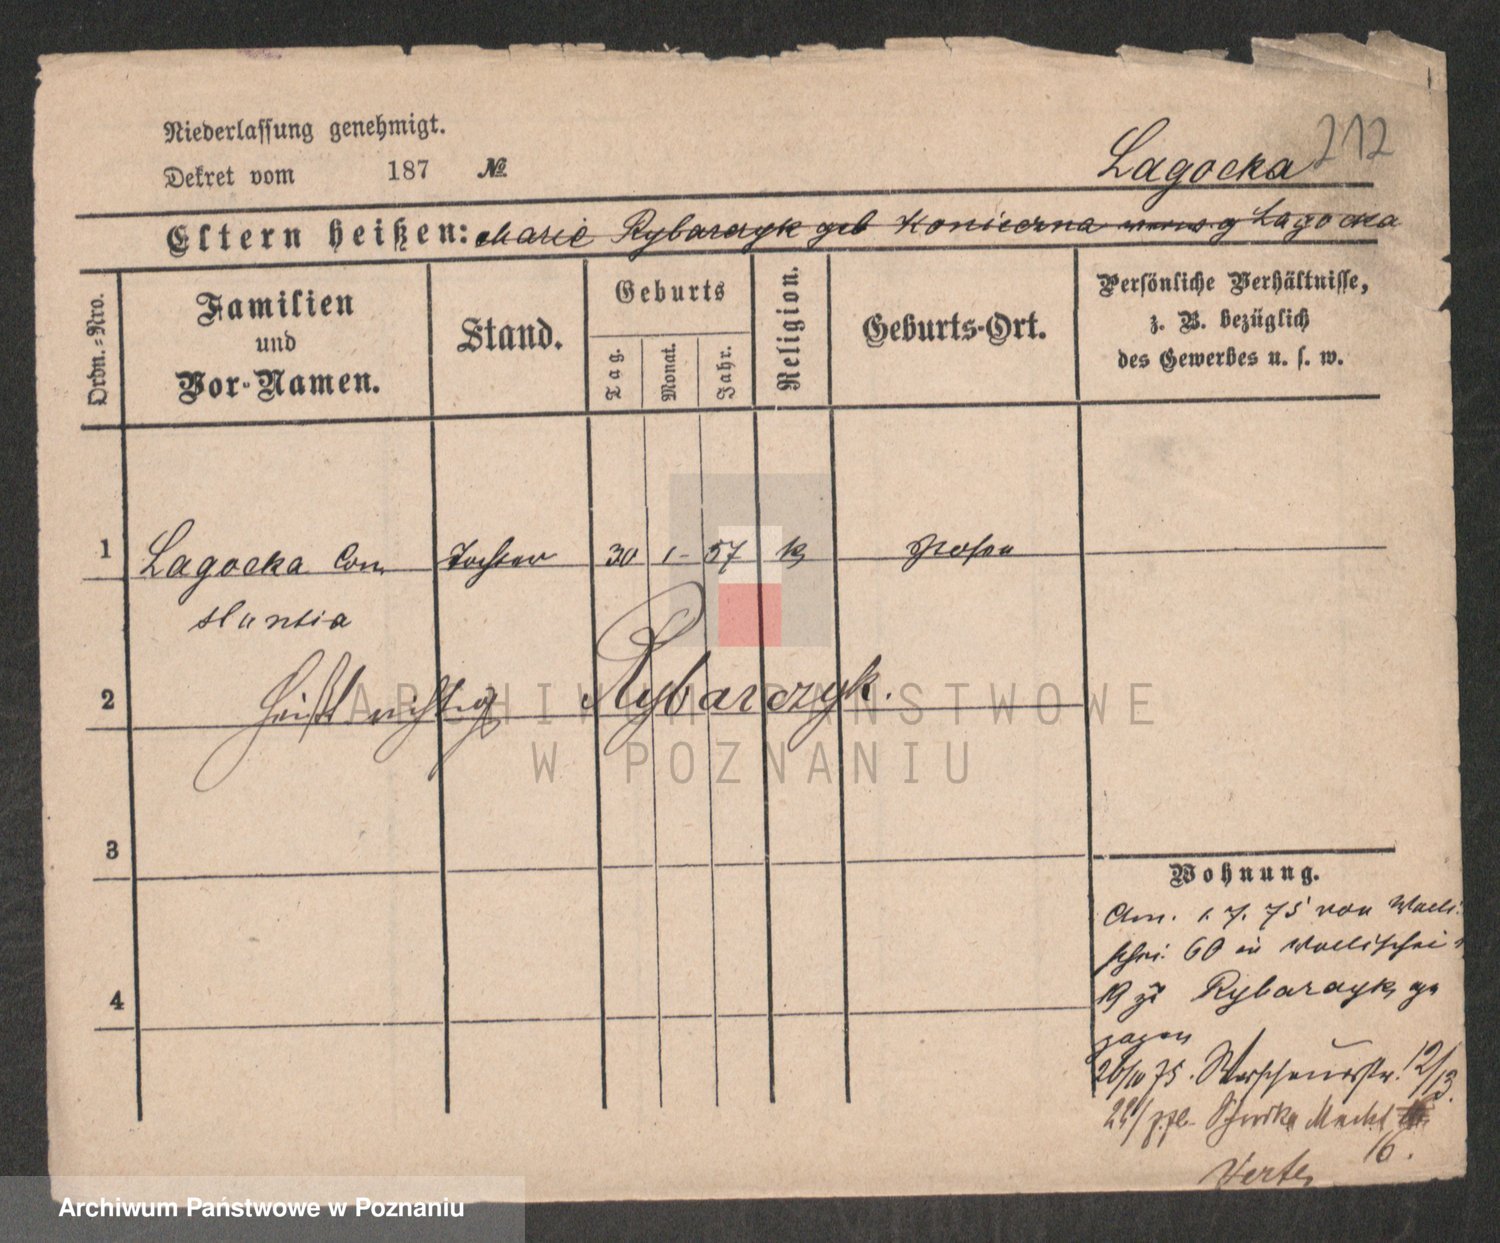 Niederlassung genehmigt.
Dekret vom 187 №
Lagocka 212
Eltern heißen: Marie Rybarczyk geb Konieczna Lagocka
Ordn.-Nro.
Familien
und
Vor-Namen.
Stand.
Geburts
Tag.
Monat.
Jahr.
Religion.
Geburts-Ort.
Persönliche Verhältnisse,
z. B. bezüglich
des Gewerbes u. s. w.
1 Lagocka Con Tochter 30 1 57 k Posen
stantia
2 heißt richtig Rybarczyk.
3
4
Wohnung.
Am. 1. 7. 75 von Walli
schei 60 in Wallischei
19 zu Rybarczyk ge
zogen
26/10 75. Warschauerstr. 12/13.
Markt
16.
Verte
ARCHIWUM PAŃSTWOWE
W POZNANIU
Archiwum Państwowe w Poznaniu